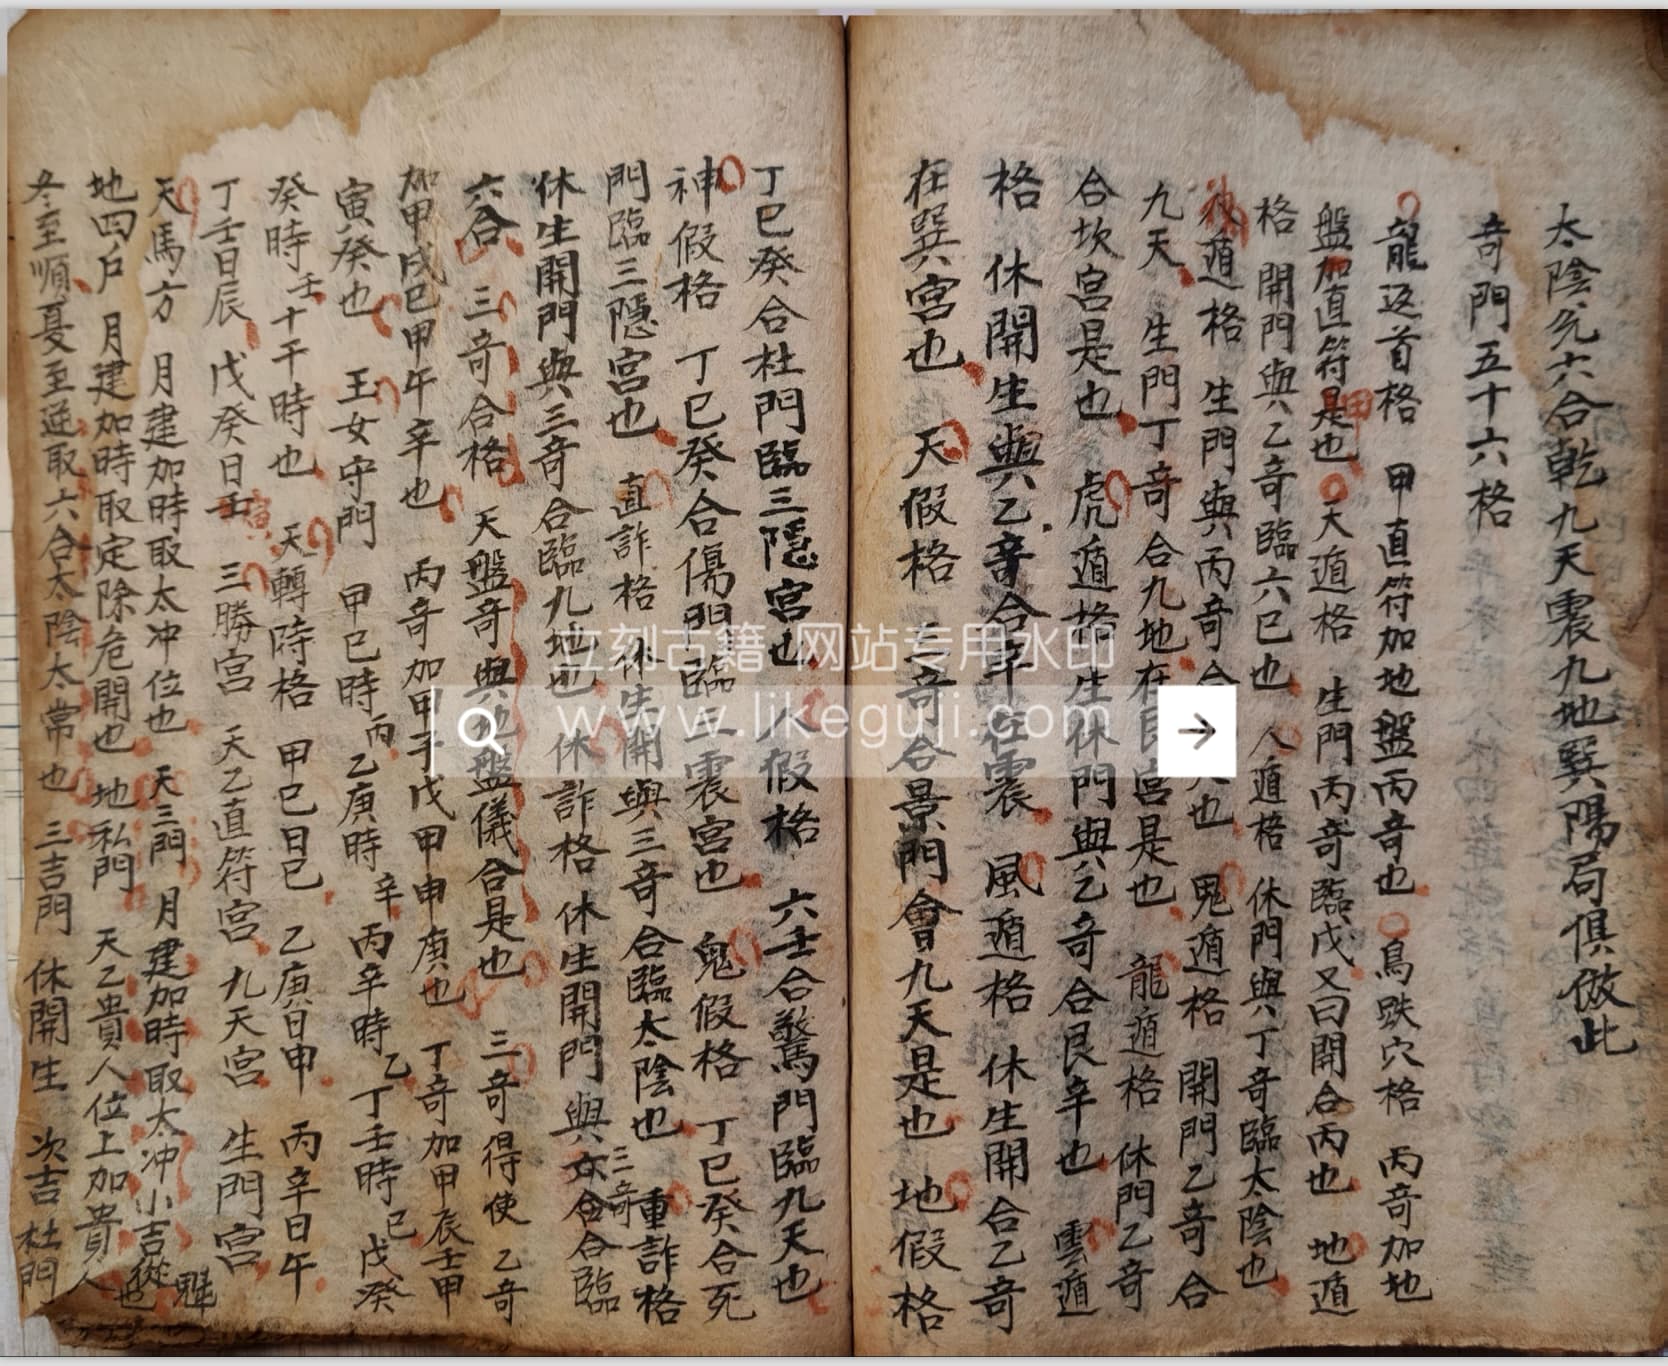 太陰兌六合乾九天震九地巽陽局俱倣此
奇門五十六格
龍返首格 甲直符加地盤丙奇也 鳥跌穴格 丙奇加地
盤加直符是也 天遁格 生門丙奇臨戊又曰開合丙也 地遁
格 開門與乙奇臨六巳也 人遁格 休門與丁奇臨太陰也
遁格 生門與丙奇合 也 鬼遁格 開門乙奇合
九天 生門丁奇合九地在艮宮是也 龍遁格 休門乙奇
合坎宮是也 虎遁格 生休門與乙奇合艮辛也 雲遁
格 休開生與乙奇合辛在震 風遁格 休生開合乙奇
在巽宮也 天假格 三奇合景門會九天是也 地假格
丁巳癸合杜門臨三隱宮也 人假格 六壬合驚門臨九天也
神假格 丁巳癸合傷門臨 震宮也 鬼假格 丁巳癸合死
門臨三隱宮也 直詐格 休生開與三奇合臨太陰也 重詐格
休生開門與三奇合臨九地也 休詐格 休生開門與三奇合臨
六合 三奇合格 天盤奇與地盤儀合是也 三奇得使 乙奇
加甲戌巳甲午辛也 丙奇加甲子戊甲申庚也 丁奇加甲辰壬甲
寅癸也 玉女守門 甲巳時丙 乙庚時辛 丙辛時乙 丁壬時巳 戊癸
癸時壬十干時也 天轉時格 甲巳日巳 乙庚日申 丙辛日午
丁壬日辰 戊癸日壬寅 三勝宮 天乙直符宮 九天宮 生門宮
天馬方 月建加時取太冲位也 天三門 月建加時取太冲小吉從魁也
地四戶 月建加時取定除危開也 地私門 天乙貴人位上加貴人
冬至順夏至逆取六合太陰太常也 三吉門 休開生 次吉杜門
立刻古籍 网站专用水印
www.likeguji.com